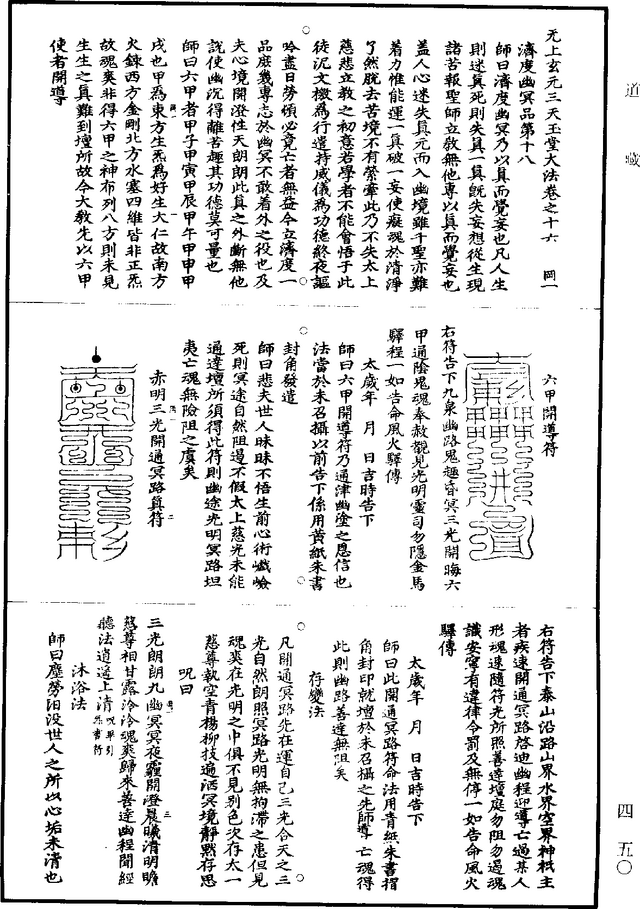 道藏
四 五〇
无上玄元三天玉堂大法卷之十六 岡一
濟度幽冥品第十八
師曰濟度幽冥乃以真而覺妄也凡人生
則迷真死則失真一真既失妄想從生現
諸苦報聖師立教無他專以真而覺妄也
蓋人心迷失真元而入幽境雖千聖亦難
着力惟能運一真破一妄使癡魂於清淨
了然脫去苦境不有縈牽此乃不失太上
慈悲立教之初意若學者不能會悟于此
徒泥文檄為行遣持威儀為功德終夜謳
吟盡日勞頓必竟亡者無益今立濟度一
品庶幾專志於幽冥不敢着外之役也及
夫心境開澄性天朗朗此真之外斷無他
說使幽沉得離苦趣其功德莫可量也
師曰六甲者甲子甲寅甲辰甲午甲申甲
戌也甲為東方生炁為好生大仁故南方
火鍊西方金剛北方水塞四維皆非正炁
故魂爽非得六甲之神布列八方則未見
生生之真難到壇所故今大教先以六甲
使者開導
六甲開導符
右符告下九泉幽路鬼趣昏冥三光開晦六
甲通陰鬼魂奉赦覩見光明靈司勿隱金馬
驛程一如告命風火驛傳
太歲年 月 日吉時告下
師曰六甲開導符乃通津幽塗之恩信也
法當於未召攝以前告下係用黃紙朱書
封角發遣
師曰悲夫世人昧昧不悟生前心術巇嶮
死則冥途自然阻邊不假太上慈光未能
通達壇所須得此符則幽途光明冥路坦
夷亡魂無險阻之虞矣
赤明三光開通冥路真符
右符告下泰山沿路山界水界空界神祇主
者疾速開通冥路啓迪幽程迎導亡過某人
形魂速隨符光所照善達壇庭勿阻勿過魂
識安寧有違律令罰及無停一如告命風火
驛傳
太歲年 月 日吉時告下
師曰此開通冥路符命法用青紙朱書摺
角封印就壇於未召攝之先師導亡魂得
此則幽路善達無阻矣
存變法
凡開通冥路先在運自己三光合天之三
光自然朗照冥路光明無拘滯之患但見
魂爽在光明之中俱不見別色次存太一
慈尊執空青楊柳枝遍洒冥境靜默存思
呪曰
三光朗朗九幽冥冥夜靂開澄晨曦清明瞻
慈尊相甘露泠泠魂爽歸來善達幽程聞經
聽法逍遥上清呪畢引炁書符
沐浴法
師曰塵勞汨没世人之所以心垢未清也